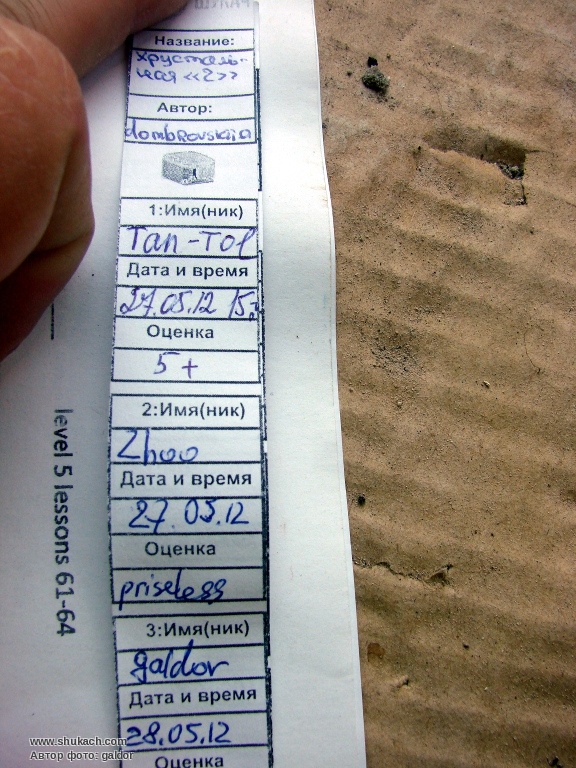 Название:
хрусталь-
ная «2»
Автор:
dombrovskaia
1:Имя(ник)
Tan-Tol
Дата и время
27.05.12
Оценка
5+
2:Имя(ник)
Zhoo
Дата и время
27.05.12
Оценка
priseless
3:Имя(ник)
galdor
Дата и время
28.05.12
Оценка
level 5 lessons 61-64
www.shukach.com
Автор фото: galdor